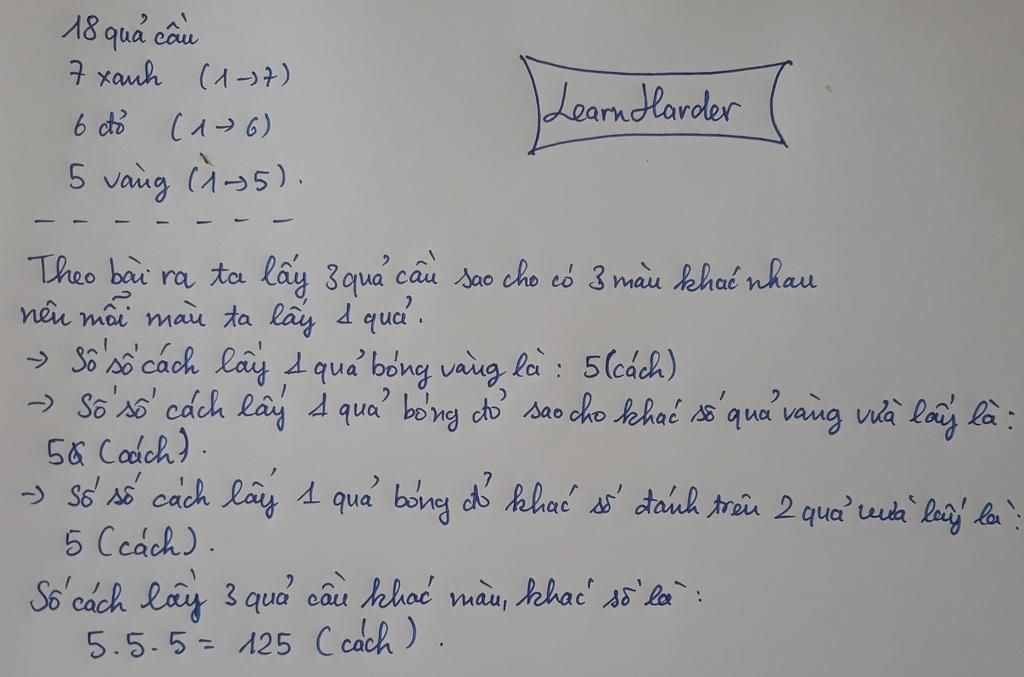 18 quả cầu
7 xanh (1→7)
6 đỏ (1→6)
5 vàng (1→5).
Learn Harder
Theo bài ra ta lấy 3 quả cầu sao cho có 3 màu khác nhau
nên mỗi màu ta lấy 1 quả.
→ Số số cách lấy 1 quả bóng vàng là: 5 (cách)
→ Số số cách lấy 1 quả bóng đỏ sao cho khác số quả vàng vừa lấy là:
5 (cách).
→ Số số cách lấy 1 quả bóng đỏ khác số đánh trên 2 quả vừa lấy là:
5 (cách).
Số cách lấy 3 quả cầu khác màu, khác số là:
5.5.5 = 125 (cách).